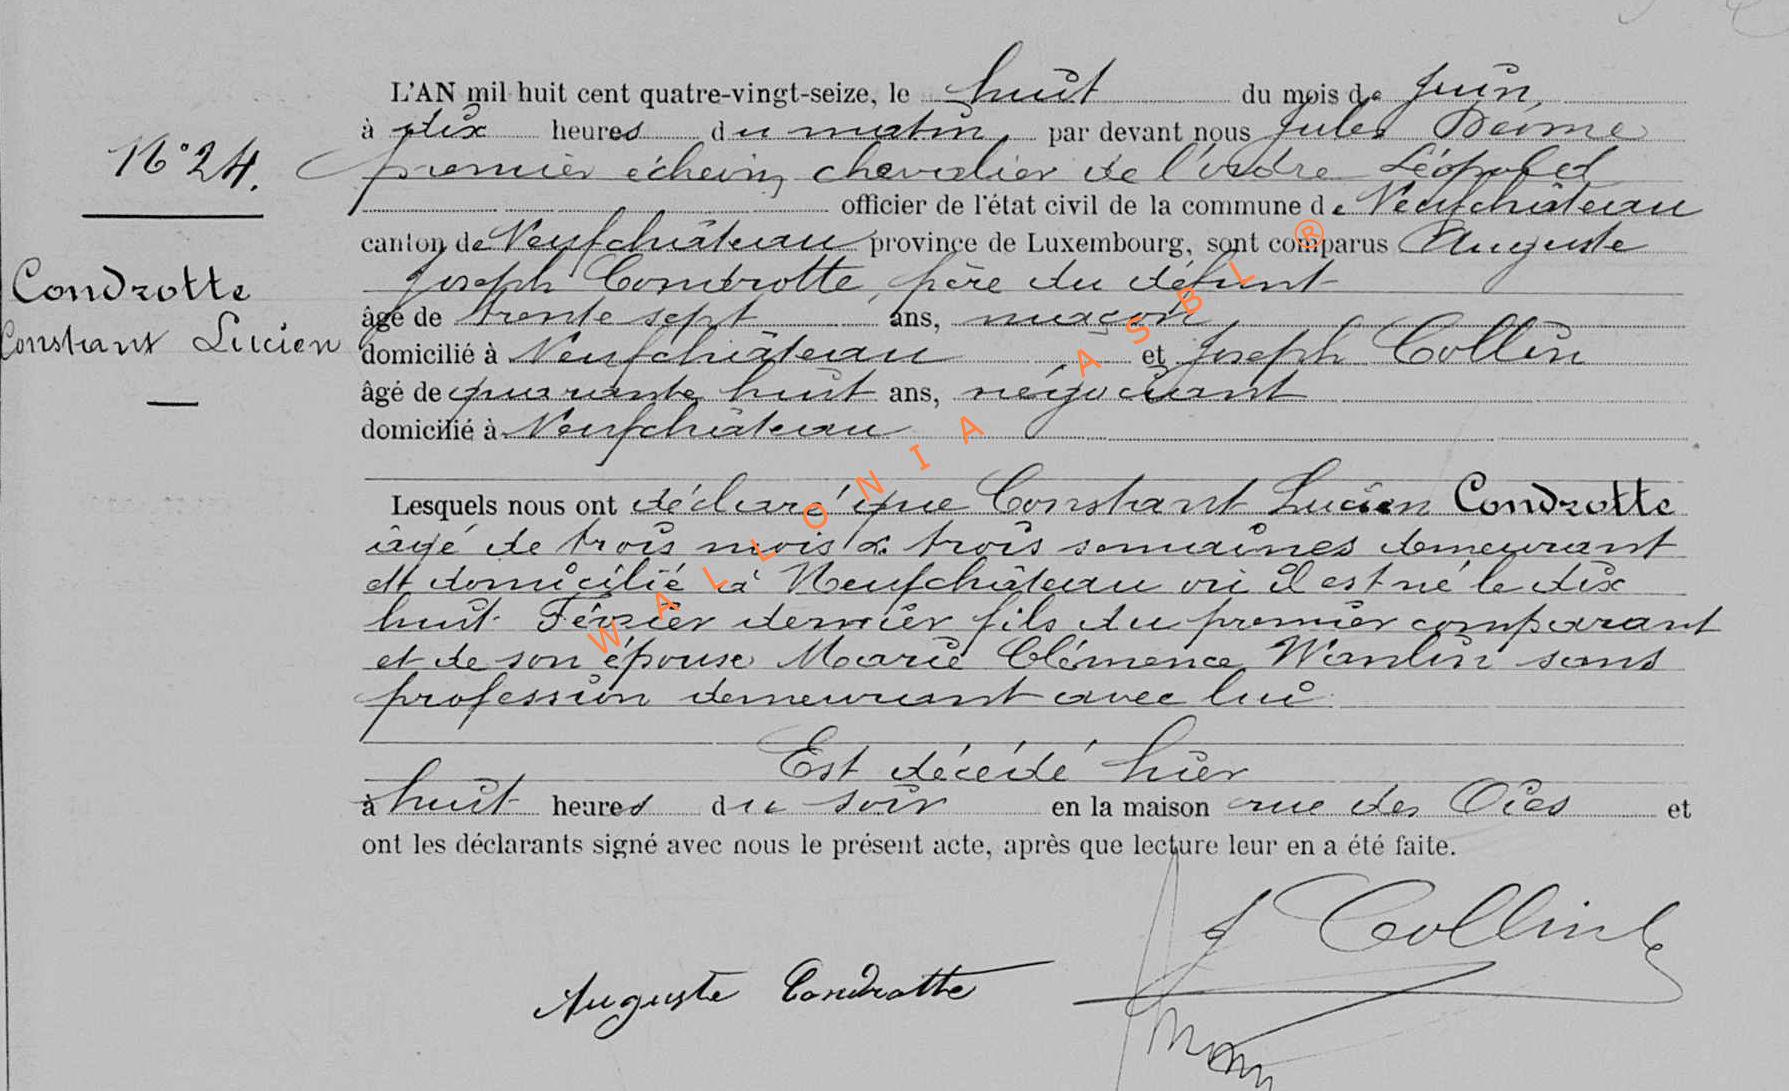 L'AN mil huit cent quatre-vingt-seize, le huit du mois de Juin,
à dix heures du matin, par devant nous Jules
N° 24.
premier échevin, chevalier de l'ordre Léopold
officier de l'état civil de la commune de Neufchâteau
canton de Neufchâteau province de Luxembourg, sont comparus Auguste
Condrotte
Constant Lucien
Joseph Condrotte, père du défunt
âgé de trente sept ans, maçon
domicilié à Neufchâteau et Joseph Collin
âgé de quarante huit ans, négociant
domicilié à Neufchâteau
Lesquels nous ont déclaré que Constant Lucien Condrotte
âgé de trois mois & trois semaines demeurant
et domicilié à Neufchâteau où il est né le dix
huit Février dernier fils du premier comparant
et de son épouse Marie Clémence Wanlin sans
profession demeurant avec lui
Est décédé hier
à huit heures du soir en la maison rue des Oies et
ont les déclarants signé avec nous le présent acte, après que lecture leur en a été faite.
J Collin
Auguste Condrotte
WALLONIA ASBL ®